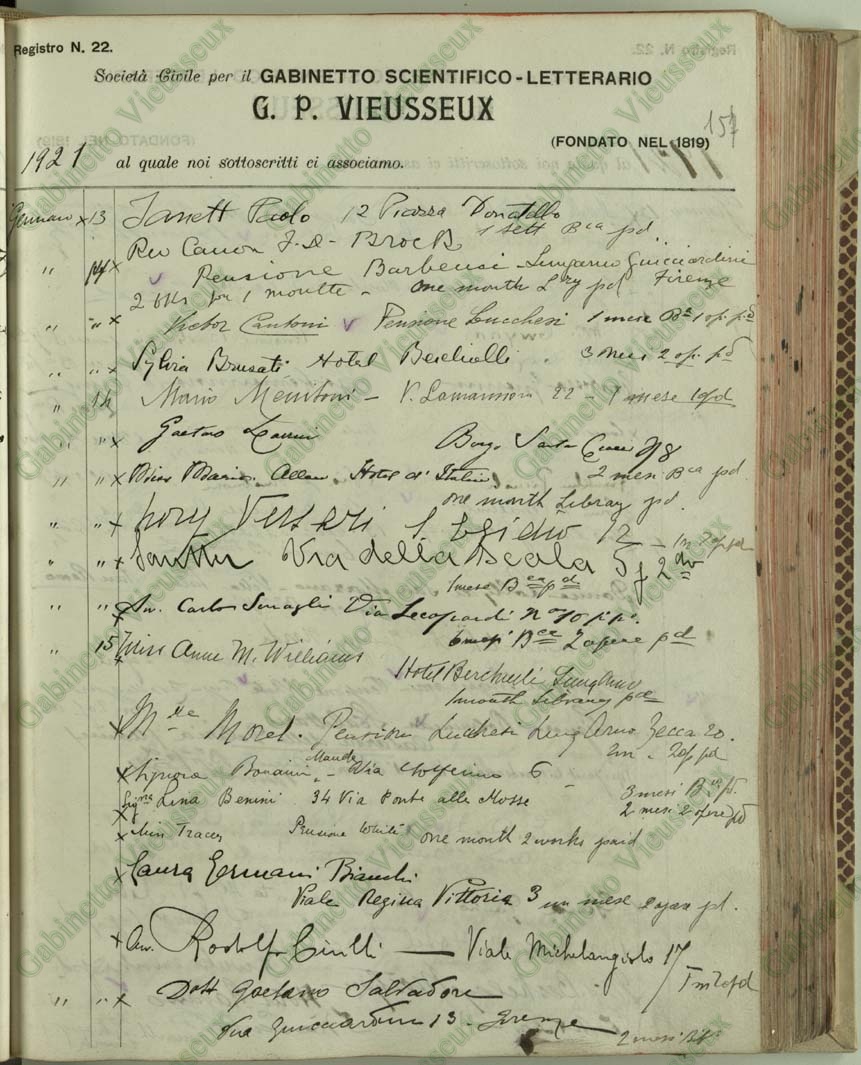 Registro N. 22.
Società Civile per il GABINETTO SCIENTIFICO-LETTERARIO
G. P. VIEUSSEUX
157
(FONDATO NEL 1819)
1921 al quale noi sottoscritti ci associamo.
Gennaio x 13 Paolo 12 Piazza Donatello
1 sett Bca pd
Rev Canon J. D. Brock
" 14 x Pensione Barbensi Lungarno Guicciardini
2 bks for 1 month - one month Lry pd Firenze
" " x Victor Cantoni v Pensione Lucchesi 1 mese Ba 1 op. pd
" " x Sylvia Brusati Hotel Berchielli . 3 mesi 2 op. pd
" 14 Mario V. Lamarmora 22 - 1 mese 1 opd
" " x Gaetano Borgo Santa Croce 8
" " x Miss Maria Allan, Hotel d'Italia, 2 mesi Bca pd
one month Library pd.
" " x S Egidio 12 - 1m 2 op pd
" " x Via della Scala 5 f 2do
1 mese Bca pd
" " x Av. Carlo Via Leopardi No 10 p. p.
6 mesi Bca 2 opere pd
" 15 x Miss Anne M. Williams
Hotel Berchielli Lung Arno
1 month Library pd
x Mde Morel. Pension Lucchesi Lung Arno Zecca 20.
2m - 2 op pd
x Signora Bonaini Maude - Via Solferino 6 -
3 mesi Bca pd.
x Sigra Lina Benini 34 Via Ponte alle Mosse 2 mesi 2 opere pd
x Miss Tracey Pensione White one month 2 works paid
x Laura Germani Bianchi
Viale Regina Vittoria 3 un mese 2 opere pd.
x Av. Rodolfo Cirilli — Viale Michelangiolo 17
1 m 2 o pd
" " x Dott Gaetano Salvadore
Via Guicciardini 13. Firenze
2 mesi
Gabinetto Vieusseux